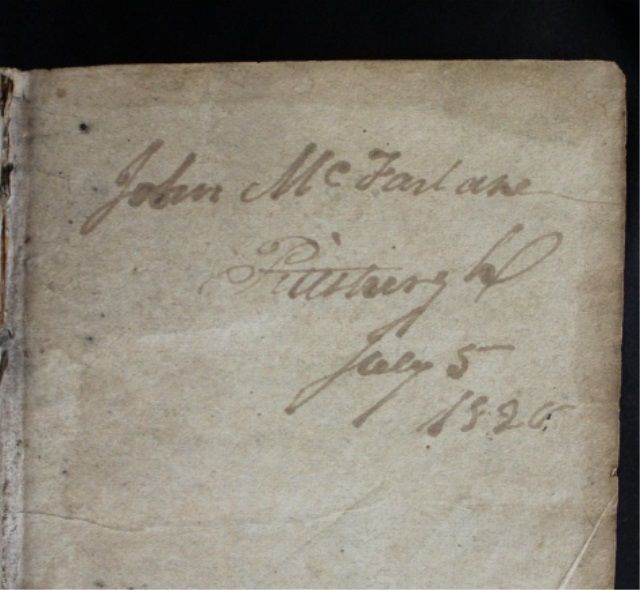 John McFarlane
Pittsburgh
July 5